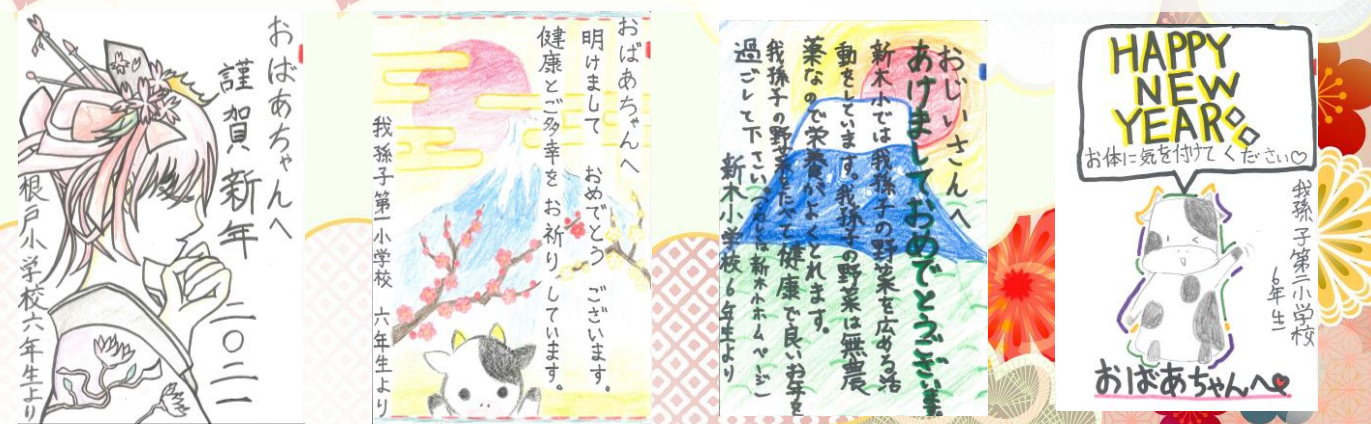 おばあちゃんへ
謹賀新年
二〇二一
根戸小学校六年生より
おばあちゃんへ
明けまして おめでとう ございます。
健康とご多幸を お祈りしています。
我孫子第一小学校 六年生より
おじいさんへ
あけましておめでとうございます
新木小では我孫子の野菜を広める活
動をしています。我孫子の野菜は無農
薬なので栄養がよくとれます。
我孫子の野菜をたべて健康で良いお年を
過ごして下さい。
新木小学校6年生より
HAPPY
NEW
YEAR
お体に気を付けてください♡
我孫子第二小学校
6年生
おばあちゃんへ♥